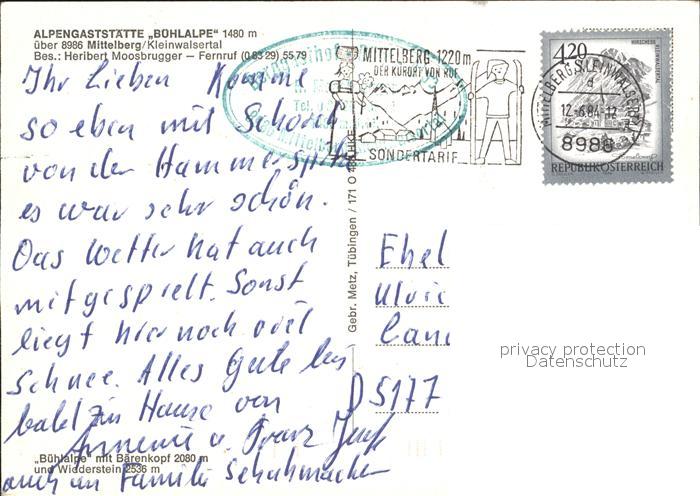 ALPENGASTSTÄTTE „BÜHLALPE" 1480 m
über 8986 Mittelberg/Kleinwalsertal
Bes.: Heribert Moosbrugger — Fernruf (0 83 29) 55 79
Ihr Lieben Komme
so eben mit Schorsch
von der Hammerspitz
es war sehr schön.
Das Wetter hat auch
mitgespielt. Sonst
liegt hier noch viel
Schnee. Alles Gute bis
bald zu Hause von
Annemie u. Franz Josef
auch an Familie Schuhmacher
„Bühlalpe" mit Bärenkopf 2080 m
und Widderstein 2536 m
Gebr. Metz, Tübingen / 171 O
MITTELBERG · 1220 m
DER KURORT VON RUF
SONDERTARIF
MITTELBERG, KLEINWALSERTAL
a
12.-6.84-12
8986
4.20
HIRSCHEGG
KLEINWALSERTAL
REPUBLIK ÖSTERREICH
Ehel
Ulri
Can
D 5177
privacy protection
Datenschutz